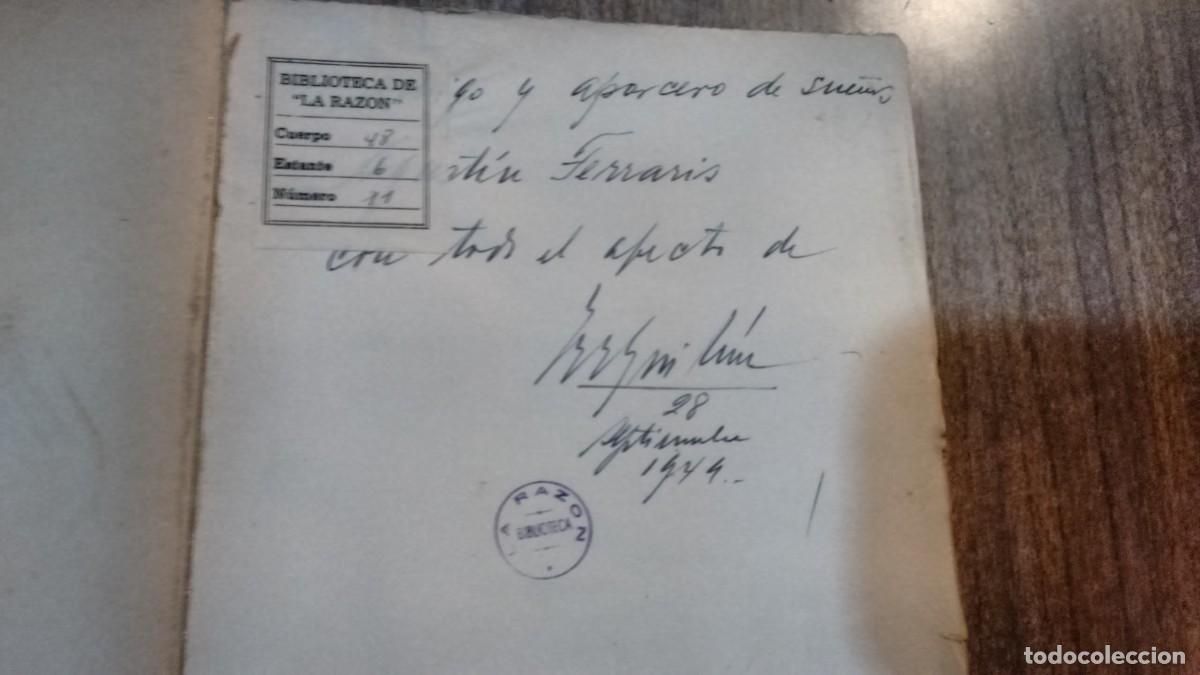 BIBLIOTECA DE
"LA RAZON"
Cuerpo 48
Estante 6
Número 11
igo y aparcero de sueños
stín Ferraris
con todo el afecto de
28
septiembre
1949..
LA RAZON
BIBLIOTECA
todocoleccion